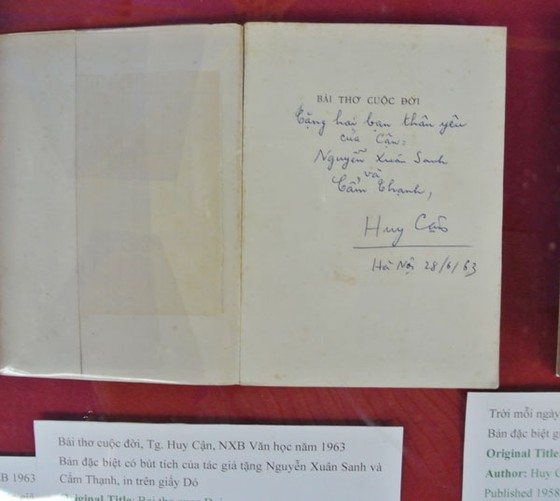 BÀI THƠ CUỘC ĐỜI
Tặng hai bạn thân yêu
của Cận:
Nguyễn Xuân Sanh
và
Cẩm Thạnh,
Huy Cận
Hà Nội 28/6/63
Bài thơ cuộc đời, Tg. Huy Cận, NXB Văn học năm 1963
Bản đặc biệt có bút tích của tác giả tặng Nguyễn Xuân Sanh và
Cẩm Thạnh, in trên giấy Dó
Original Title: Bai tho cuoc
XB 1963
giả
Trời mỗi ngày
Bản đặc biệt g
Original Title:
Author: Huy C
Published 1958